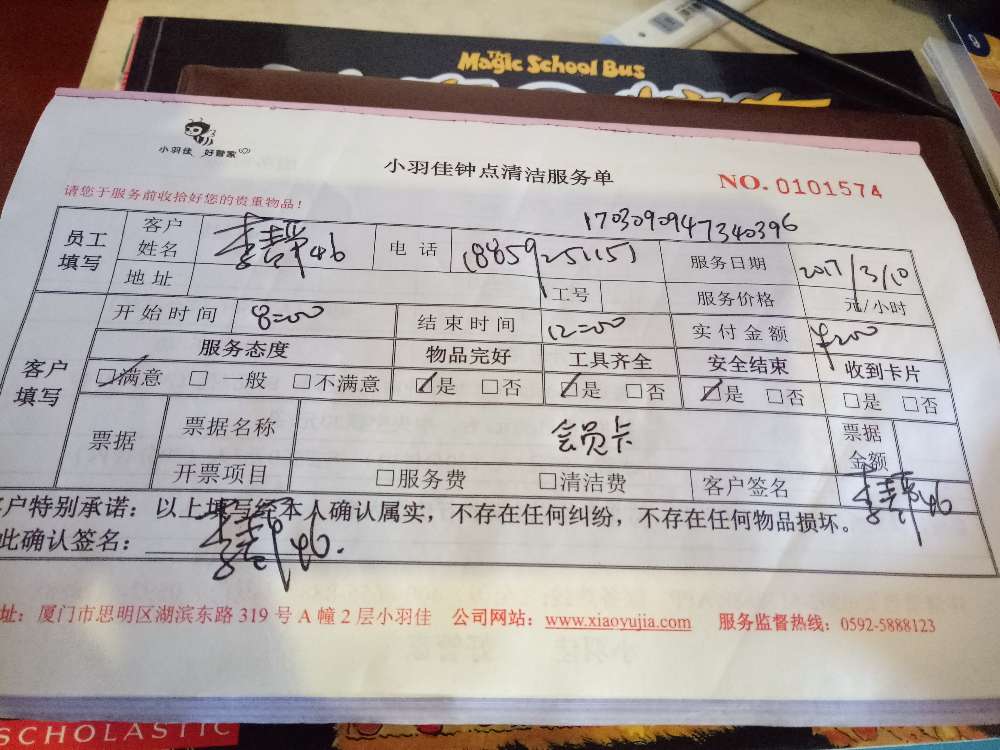 The
Magic School Bus
小羽佳 好管家
小羽佳钟点清洁服务单
NO. 0101574
请您于服务前收拾好您的贵重物品！
1703090947340396
员工填写 客户姓名 电话 18859251151 服务日期 2017/3/10
地址 工号 服务价格 元/小时
客户填写 开始时间 8:00 结束时间 12:00 实付金额 ¥200
服务态度 物品完好 工具齐全 安全结束 收到卡片
☑满意 □一般 □不满意 ☑是 □否 ☑是 □否 ☑是 □否 □是 □否
票据 票据名称 会员卡 票据金额
开票项目 □服务费 □清洁费 客户签名
客户特别承诺：以上填写经本人确认属实，不存在任何纠纷，不存在任何物品损坏。
此确认签名：
址：厦门市思明区湖滨东路 319 号 A 幢 2 层小羽佳 公司网站：www.xiaoyujia.com 服务监督热线：0592-5888123
SCHOLASTIC